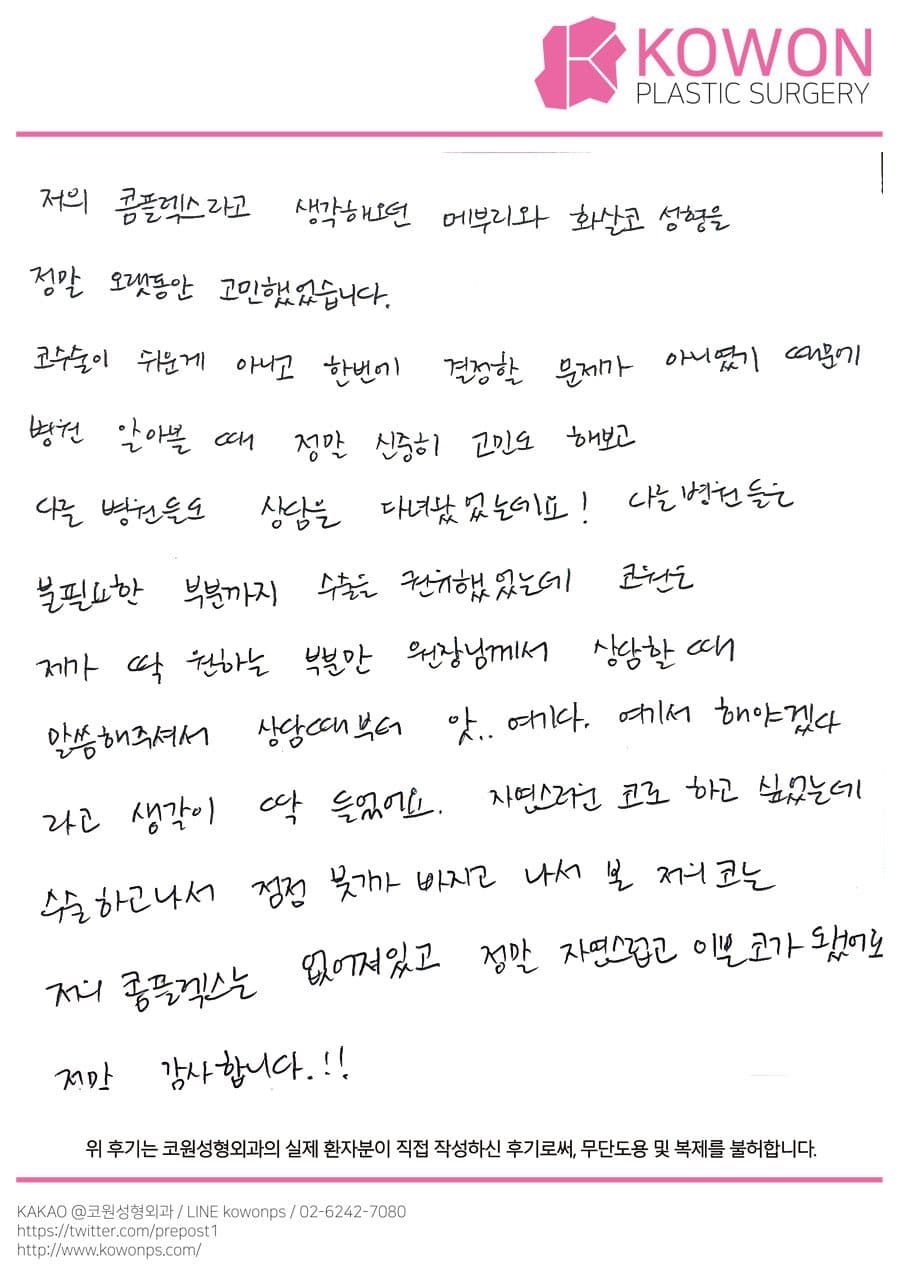 KOWON
PLASTIC SURGERY
저의 콤플렉스라고 생각해오던 메부리와 화살코 성형을
정말 오랫동안 고민했었습니다.
코수술이 쉬운게 아니고 한번에 결정할 문제가 아니였기 때문에
병원 알아볼 때 정말 신중히 고민도 해보고
다른 병원들도 상담을 다녀왔었는데요! 다른병원들은
불필요한 부분까지 수술을 권유했었는데 코원은
제가 딱 원하는 부분만 원장님께서 상담할 때
말씀해주셔서 상담때부터 앗.. 여기다. 여기서 해야겠다
라고 생각이 딱 들었어요. 자연스러운 코로 하고 싶었는데
수술하고나서 점점 붓기가 빠지고 나서 볼 저의 코는
저의 콤플렉스는 없어져있고 정말 자연스럽고 이쁜 코가 됐어요
정말 감사합니다.!!
위 후기는 코원성형외과의 실제 환자분이 직접 작성하신 후기로써, 무단도용 및 복제를 불허합니다.
KAKAO @코원성형외과 / LINE kowonps / 02-6242-7080
https://twitter.com/prepost1
http://www.kowonps.com/